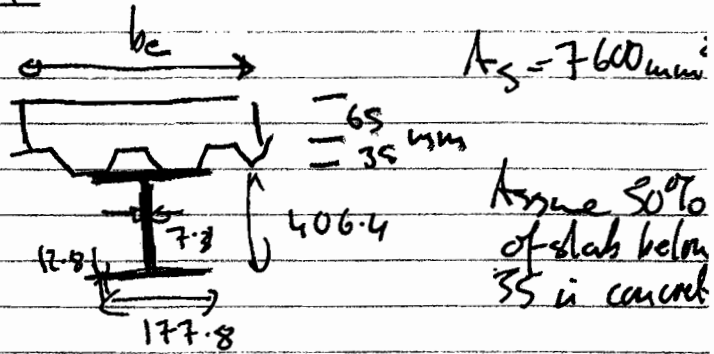 be
As = 7600 mm²
65
35 mm
406.4
7.8
12.8
177.8
Assume 50%
of slab below
35 is concret